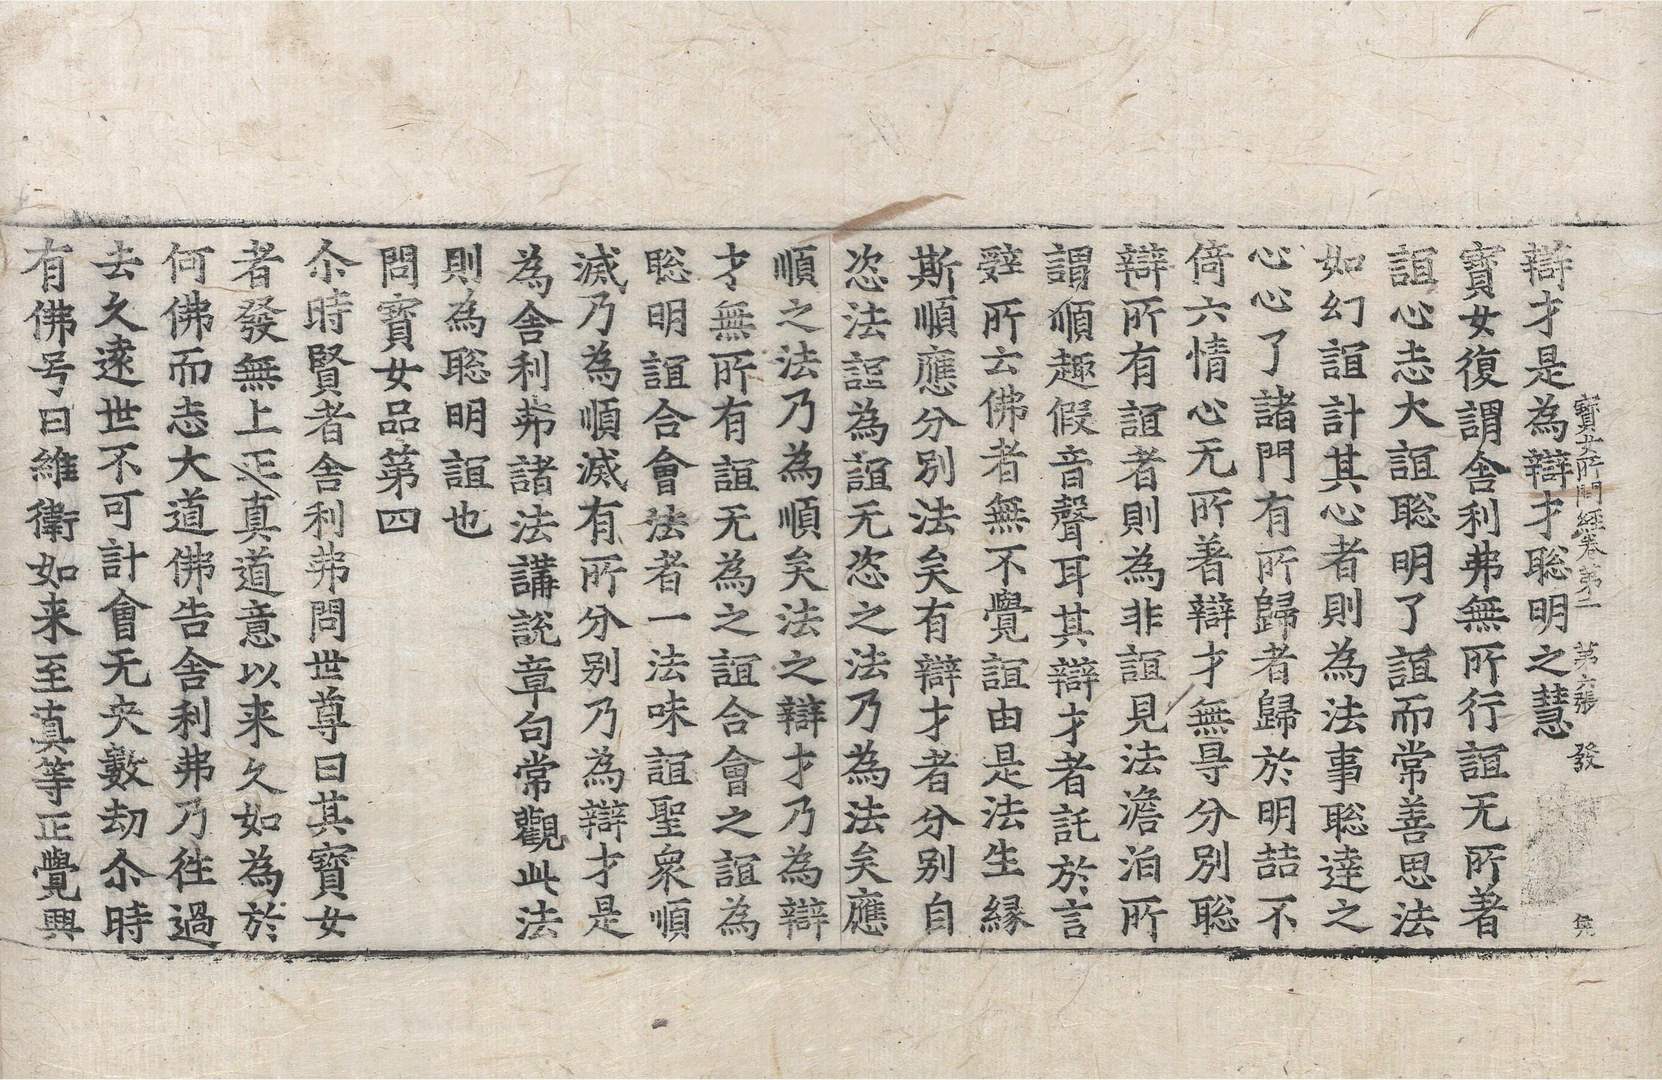 寶女所問經卷第二　第六張　發
辯才是為辯才聡明之慧
寶女復謂舍利弗無所行誼无所著
誼心志大誼聡明了誼而常善思法
如幻誼計其心者則為法事聡達之
心心了諸門有所歸者歸於明喆不
倚六情心无所著辯才無㝵分別聡
辯所有誼者則為非誼見法澹泊所
謂順趣假音聲耳其辯才者託於言
辝所云佛者無不覺誼由是法生緣
斯順應分別法矣有辯才者分別自
恣法誼為誼无恣之法乃為法矣應
順之法乃為順矣法之辯才乃為辯
才無所有誼无為之誼合會之誼為
聡明誼合會法者一法味誼聖衆順
滅乃為順滅有所分別乃為辯才是
為舍利弗諸法講說章句常觀此法
則為聡明誼也
問寶女品第四
尒時賢者舍利弗問世尊曰其寶女
者發無上正真道意以来久如為於
何佛而志大道佛告舍利弗乃往過
去久遠世不可計會无央數劫尒時
有佛号曰維衛如来至真等正覺興